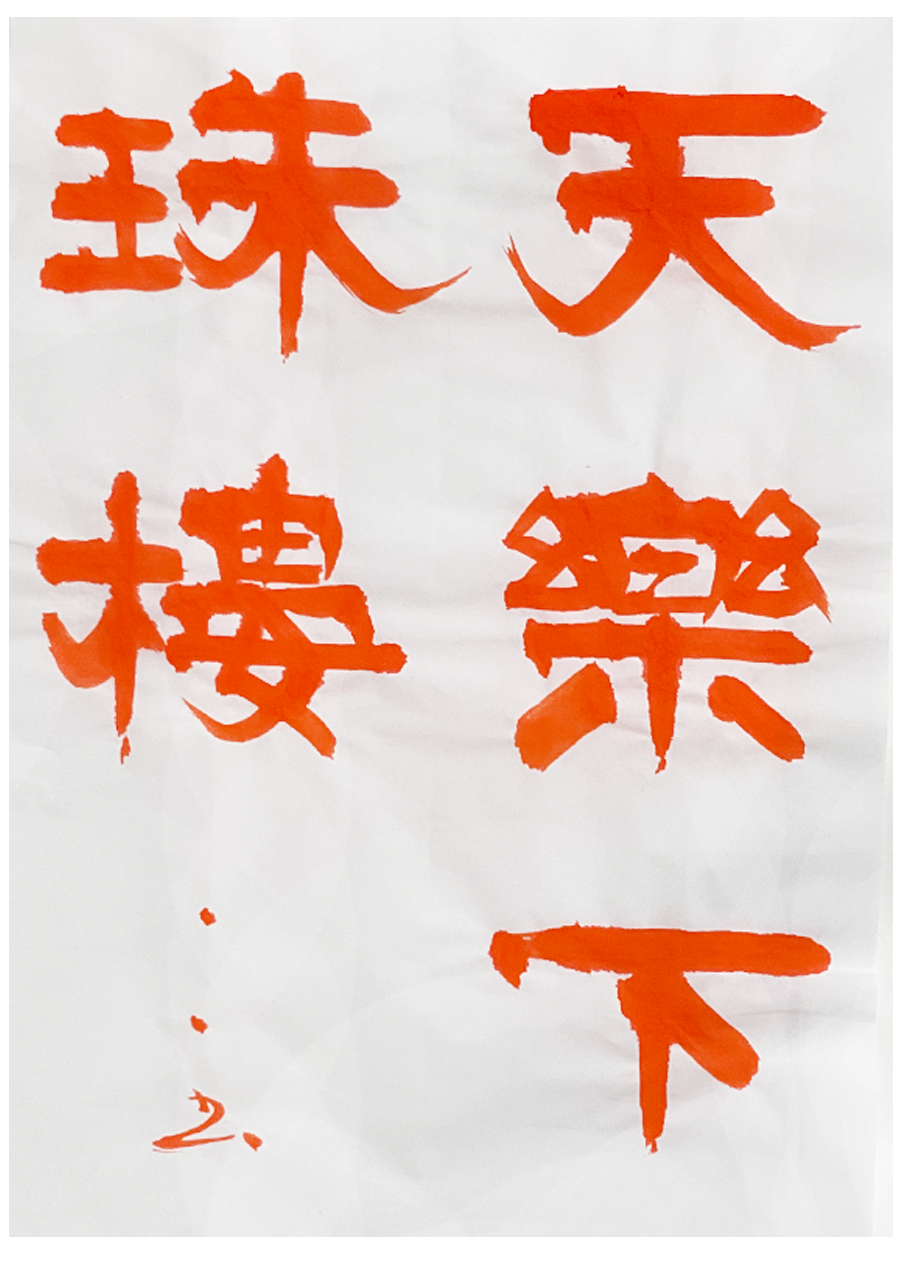 天樂下
珠樓